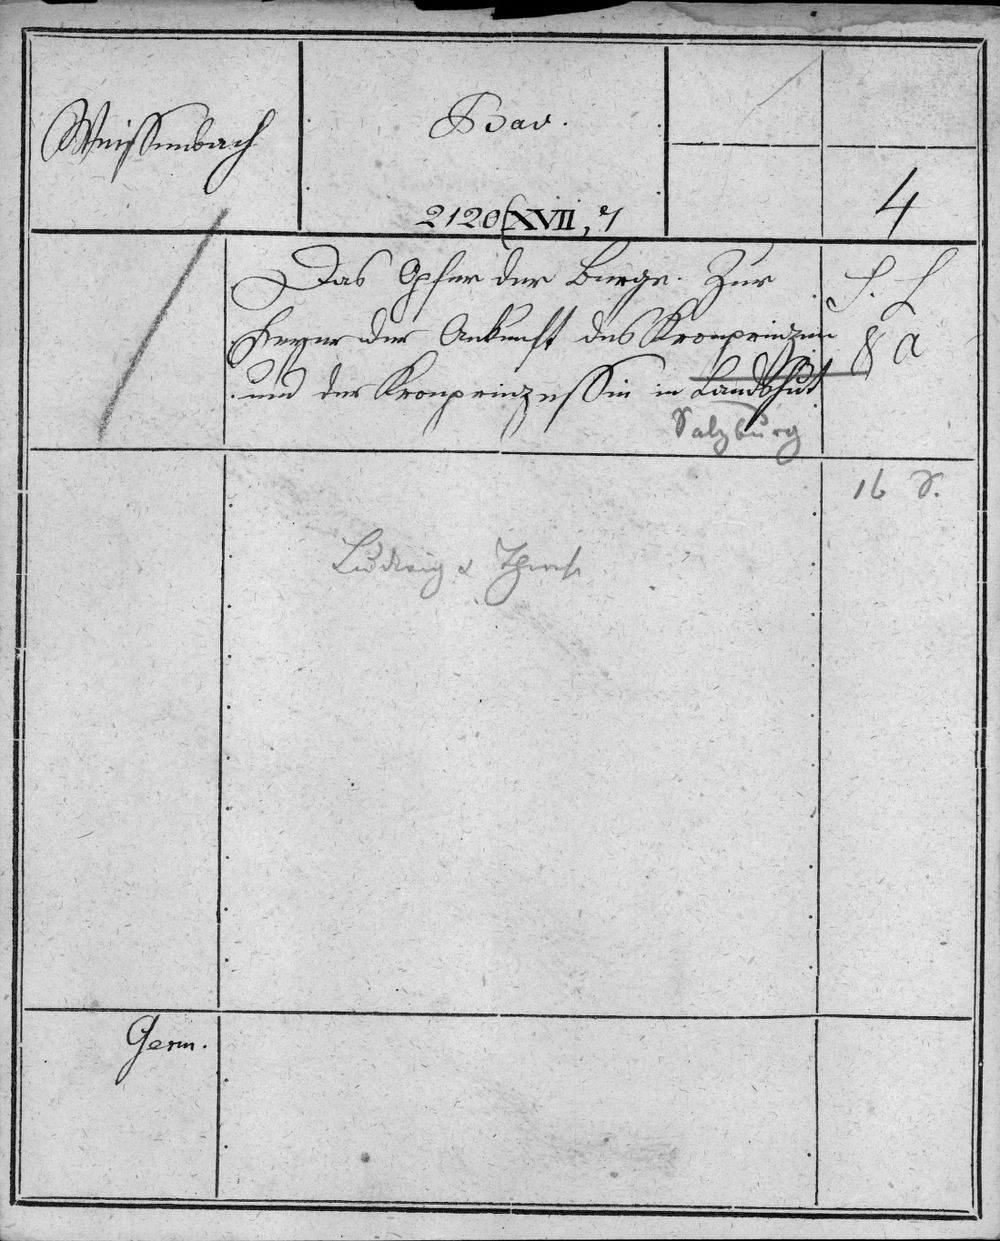 Weissenbach
Bav.
2120(XVII,7
4
Das Opfer der Berge. Zur
Feyer der Ankunft des Kronprinzen
und der Kronprinzessin in Landshut
Salzburg
s. l.
& a
16 S.
Ludwig & Therese
Germ.